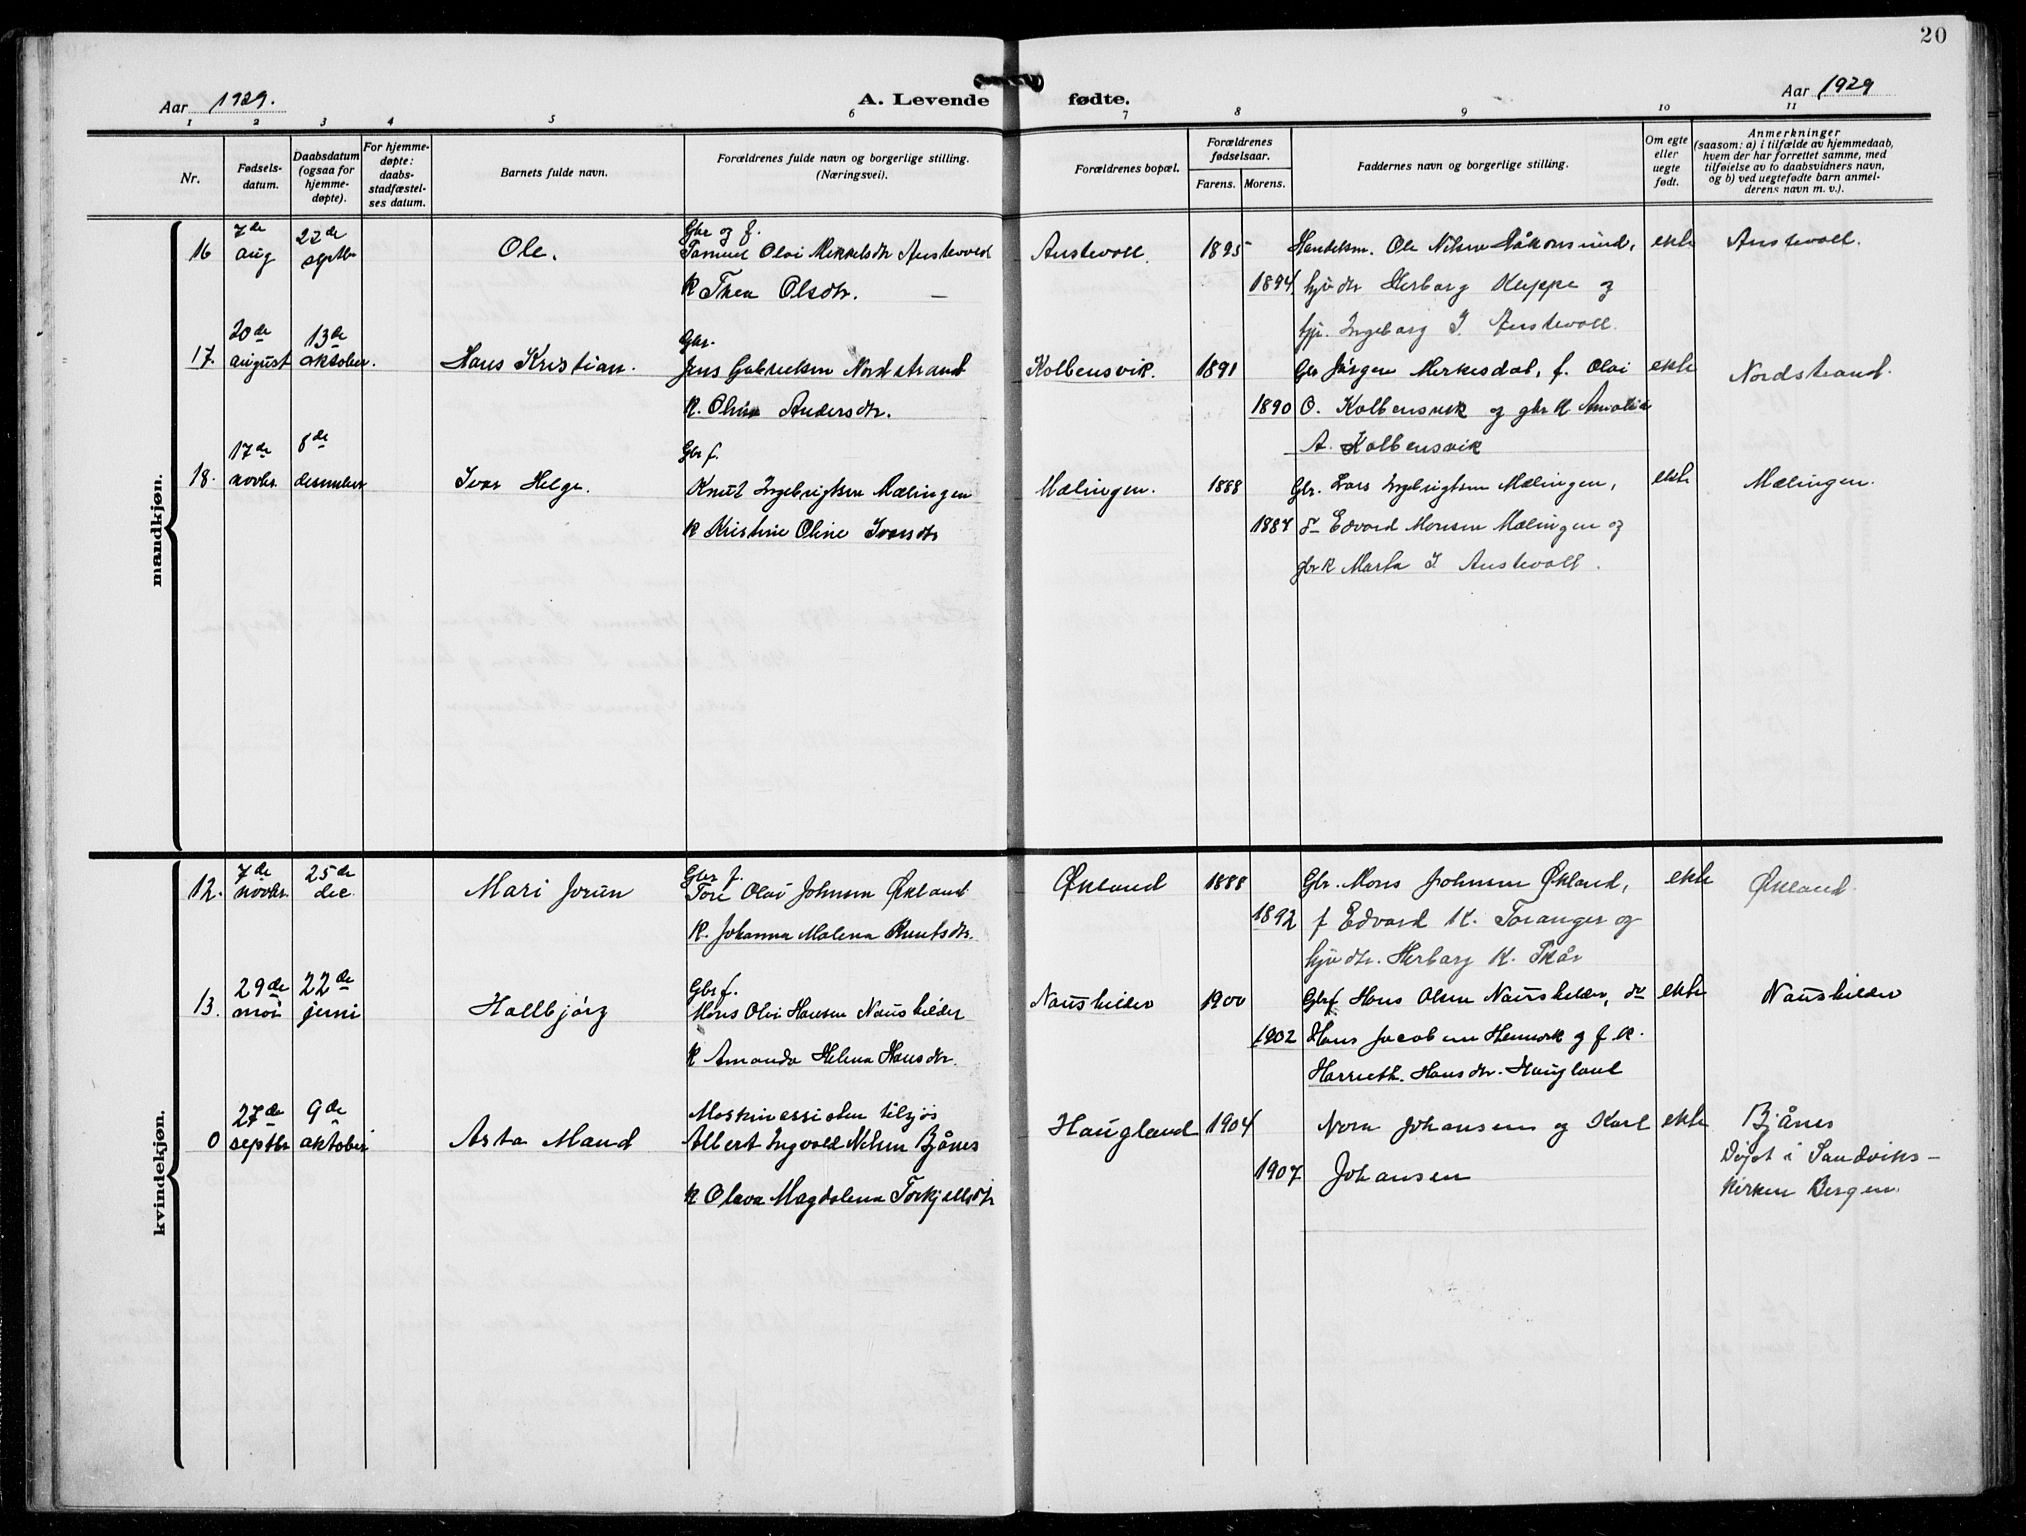 20
Aar 1929.
A. Levende fødte.
Aar 1929
1 2 3 4 5 6 7 8 9 10 11
Nr.
Fødsels-
datum.
Daabsdatum
(ogsaa for
hjemme-
døpte).
For hjemme-
døpte:
daabs-
stadfæstel-
ses datum.
Barnets fulde navn.
Forældrenes fulde navn og borgerlige stilling.
(Næringsvei).
Forældrenes bopæl.
Forældrenes
fødselsaar.
Farens. Morens.
Faddernes navn og borgerlige stilling.
Om egte
eller
uegte
født.
Anmerkninger
(saasom: a) i tilfælde av hjemmedaab,
hvem der har forrettet samme, med
tilføielse av to daabsvidners navn,
og b) ved uegtefødte barn anmel-
derens navn m. v.).
mandkjøn.
16
7de
aug
22de
septbr
Ole.
Gbr og f.
Samuel Olai Mikkelsen Austevoll
k Thea Olsdtr. —
Austevoll.
1895
1894
Handelsm. Ole Nilsen Håkonsund,
hjv dtr Herborg Kleppe og
hjv. Ingeborg J. Austevoll.
ekte
Austevoll.
17.
20de
august
13de
oktober.
Hans Kristian.
Gbr.
Jens Gabrielsen Nordstrand
k. Oline Andersdtr.
Kolbensvik.
1891
1890
Gbr Jørgen Merkesdal, f. Olai
O. Kolbensvik og gbr k Amalia
A. Kolbensvik
ekte
Nordstrand.
18.
17de
novbr.
8de
desember
Ivar Helge.
Gbr f.
Knut Ingebrigtsen Mælingen
k Kristine Oline Ivarsdtr
Mælingen.
1888
1887
Gbr. Lars Ingebrigtsen Mælingen,
do Edvard Monsen Mælingen og
gbr k Marta I Austevoll.
ekte
Mælingen.
kvindekjøn.
12.
7de
novbr.
25de
dec.
Mari Jorun
Gbr f.
Tore Olai Johnsen Økland
k. Johanna Malena Knutsdtr.
Økland
1888
1892
Gbr. Mons Johnsen Økland,
f Edvard K. Toranger og
hjv dtr. Herborg K. Skår
ekte
Økland
13.
29de
mai
22de
juni
Hallbjørg
Gbr f.
Mons Olai Hansen Naushilder
k Amanda Helena Hansdtr.
Naushilder
1900
1902
Gbr f Hans Olsen Naushilder, do
Hans Jacobsen Stenvik og f. k.
Harrieth. Hansdtr. Haugland
ekte
Naushilder
0
27de
septbr
9de
oktober
Asta Maud
Maskinassistent tilsjøs
Albert Ingvald Nilsen Bjånes
k Olava Magdalena Torkjellsdtr
Haugland
1904
1907
Nora Johansen og Karl
Johansen
ekte
Bjånes
Døpt i Sandviks-
kirken Bergen.